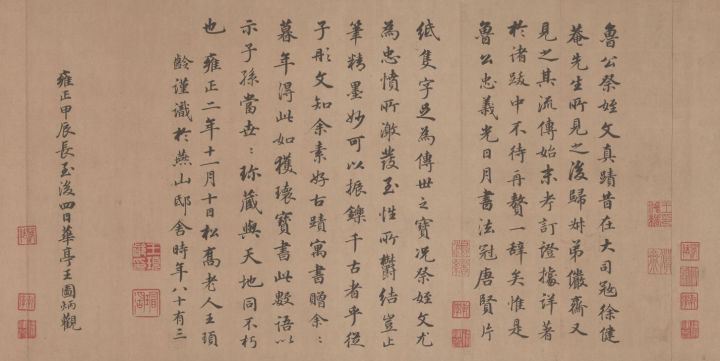 魯公祭姪文真蹟昔在大司寇徐健
菴先生所見之後歸妹弟儼齋又
見之其流傳始末考訂證據詳著
於諸跋中不待再贅一辭矣惟是
魯公忠義光日月書法冠唐賢片
紙隻字足為傳世之寶況祭姪文尤
為忠憤所激發至性所鬱結豈止
筆精墨妙可以振鑠千古者乎從
子彤文知余素好古蹟寓書贈余：
暮年得此如獲瓌寶書此數語以
示子孫當世：珍藏與天地同不朽
也 雍正二年十一月十日松喬老人王頊
齡謹識於燕山邸舍時年八十有三
雍正甲辰長至後四日華亭王圖炳觀